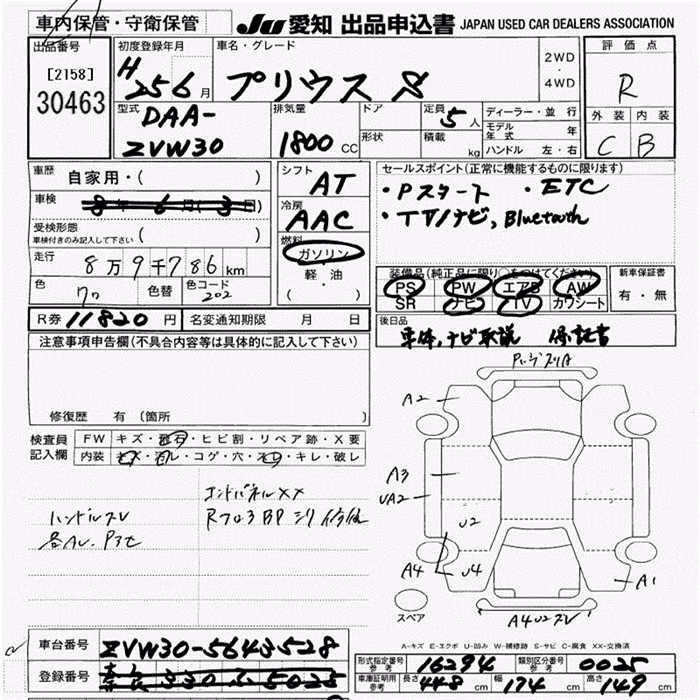 車内保管・守衛保管 JU 愛知 出品申込書 JAPAN USED CAR DEALERS ASSOCIATION
出品番号 初度登録年月 車名・グレード 2WD・4WD 評価点
[2158] H 25 6月 プリウス S R
30463
型式 DAA-ZVW30 排気量 1800 CC ドア 形状 定員 5人 積載 kg ディーラー・並行 モデル年式 年 ハンドル 左・右 外装 内装
C B
車歴 自家用・( ) シフト AT セールスポイント(正常に機能するものに限ります)
車検 8年 6月(3日) 冷房 AAC ・Pスタート ・ETC
受検形態 車検付きのみ記入して下さい ( ) 燃料 ガソリン・軽油・( ) ・TV/ナビ, Bluetooth
走行 8万9千786km 装備品(純正品に限り○をつけてください) 新車保証書
色 クロ 色替 色コード 202 PS PW エアB AW 有・無
SR ナビ TV カワシート
R券 11820円 名変通知期限 月 日 後日品
車体,ナビ取説 保証書
注意事項申告欄(不具合内容等は具体的に記入して下さい)
修復歴 有(箇所
検査員記入欄 FW キズ・飛石・ヒビ割・リペア跡・X要
内装 キズ・汚レ・コゲ・穴・スレ・キレ・破レ
エンドパネルXX
ハンドルスレ
A2
A3
UA2
U2
A4 U4 A1
スペア A4U2スレ
A-キズ E-エクボ U-凹み W-補修跡 S-サビ C-腐食 XX-交換済
車台番号 ZVW30-5643528
登録番号 奈良 330 ふ 5025
形式指定番号 参考 16294 類別区分番号 参考 0025
車庫証明用 参考 長さ 448cm 幅 174cm 高さ 149cm